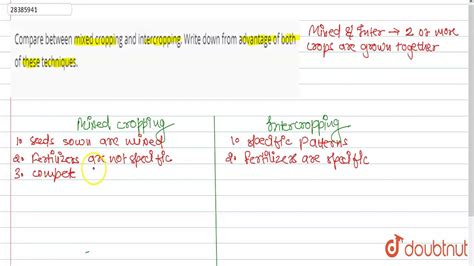 28385941
Compare between mixed cropping and intercropping. Write down from advantage of both
of these techniques.
Mixed & Inter → 2 or more
crops are grown together
Mixed cropping
1. seeds sown are mixed
2. fertilizers are not specific
3. compet
Intercropping
1. specific patterns
2. fertilizers are specific
doubtnut